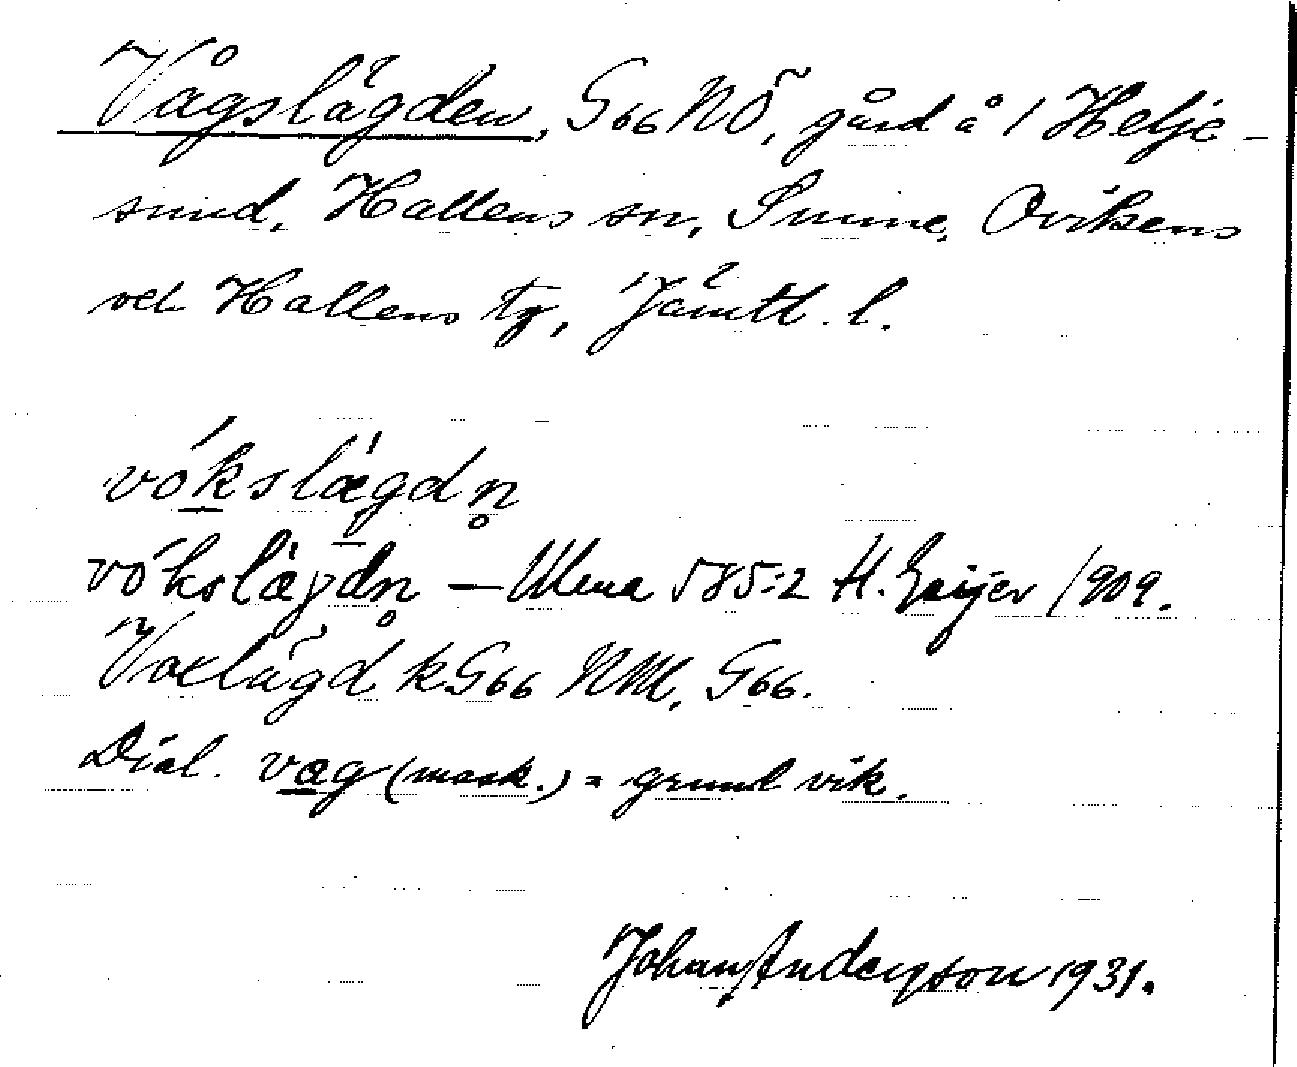 Vågslägden, G66 NÖ, gård å 1 Helje-
sund, Hallens sn, Sunne, Ovikens
och Hallens tg, Jämtl. l.
vókslægdn̥
vókslægdn̥ — Ulma 585:2 H. Geijer 1909.
Voxlägd k G66 NM, G66.
Dial. væg (mask.) = grund vik.
Johan Anderson 1931.